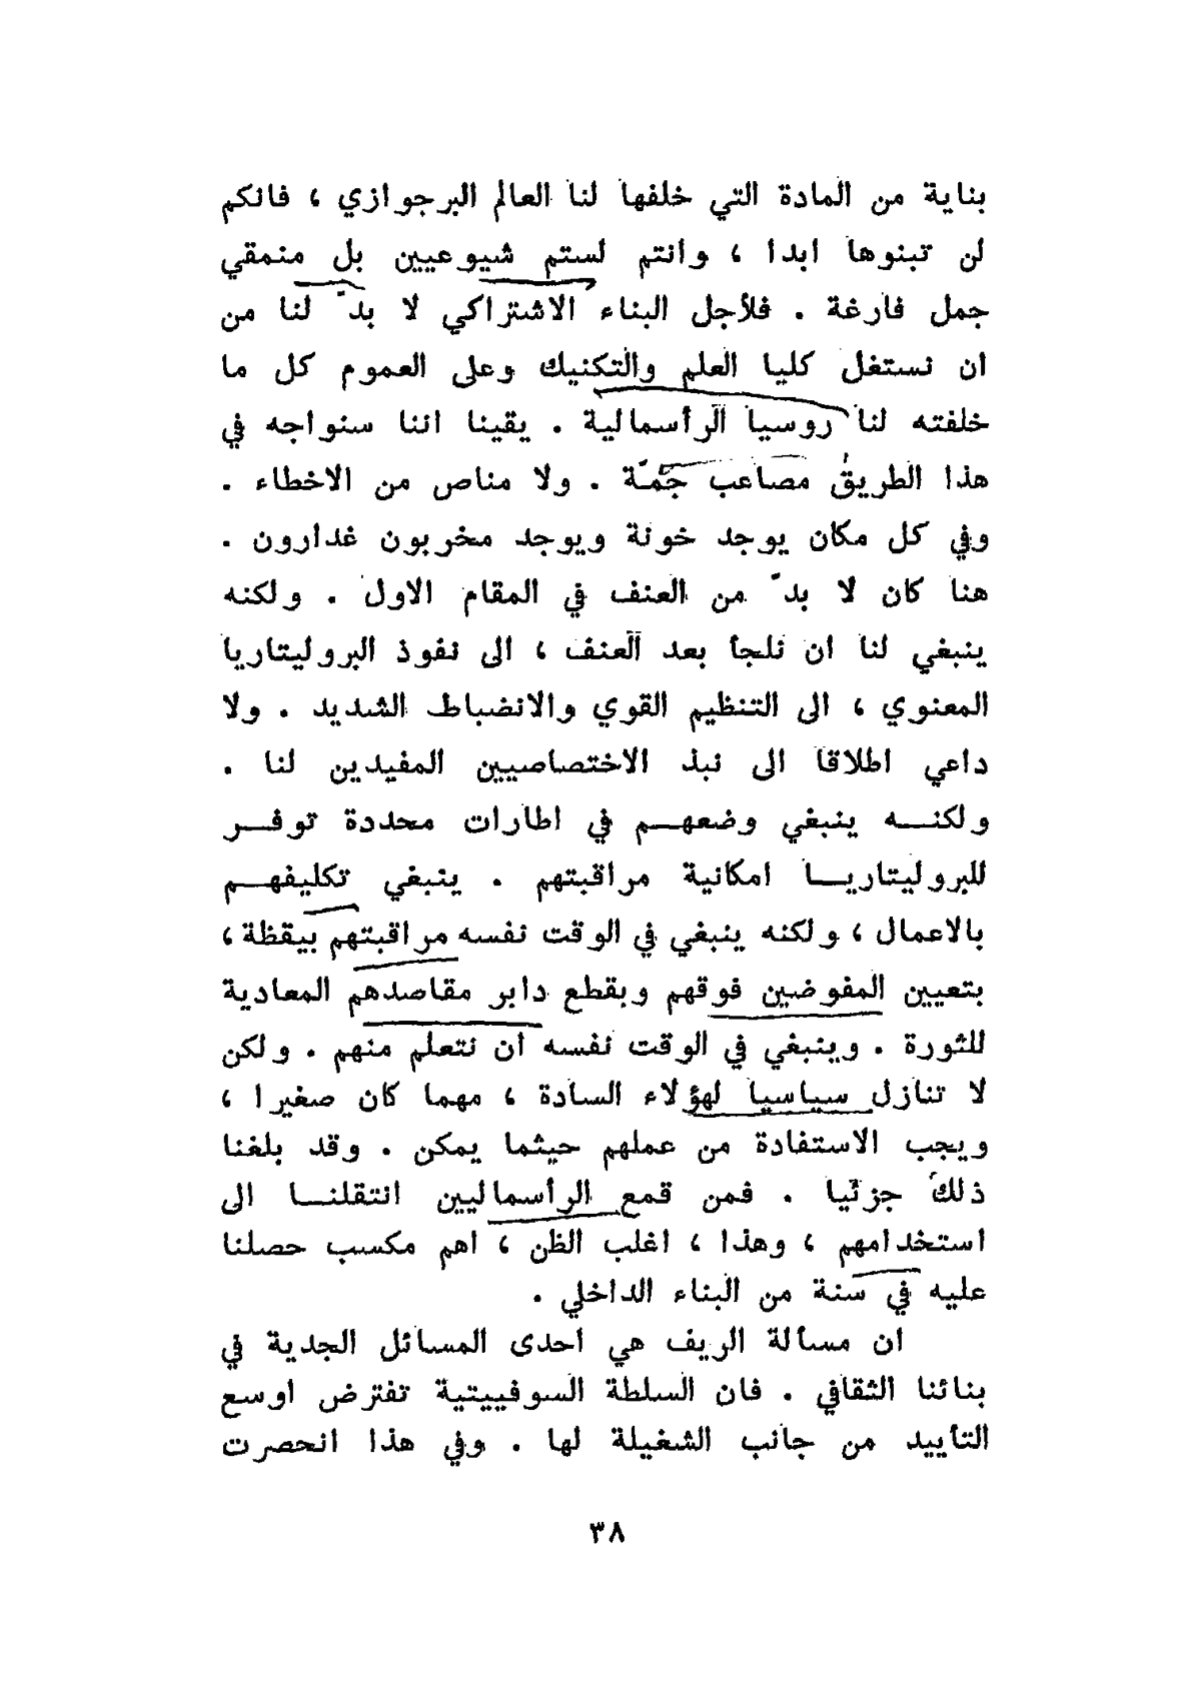 بناية من المادة التي خلفها لنا العالم البرجوازي ، فانكم
لن تبنوها ابدا ، وانتم لستم شيوعيين بل منمقي
جمل فارغة . فلأجل البناء الاشتراكي لا بدّ لنا من
ان نستغل كليا العلم والتكنيك وعلى العموم كل ما
خلفته لنا روسيا الرأسمالية . يقينا اننا سنواجه في
هذا الطريق مصاعب جمّة . ولا مناص من الاخطاء .
وفي كل مكان يوجد خونة ويوجد مخربون غدارون .
هنا كان لا بدّ من العنف في المقام الاول . ولكنه
ينبغي لنا ان نلجأ بعد العنف ، الى نفوذ البروليتاريا
المعنوي ، الى التنظيم القوي والانضباط الشديد . ولا
داعي اطلاقا الى نبذ الاختصاصيين المفيدين لنا .
ولكنـــه ينبغي وضعهــم في اطارات محددة توفــر
للبروليتاريــا امكانية مراقبتهم . ينبغي تكليفهــم
بالاعمال ، ولكنه ينبغي في الوقت نفسه مراقبتهم بيقظة ،
بتعيين المفوضين فوقهم وبقطع دابر مقاصدهم المعادية
للثورة . وينبغي في الوقت نفسه ان نتعلم منهم . ولكن
لا تنازل سياسيا لهؤلاء السادة ، مهما كان صغيرا ،
ويجب الاستفادة من عملهم حيثما يمكن . وقد بلغنا
ذلك جزئيا . فمن قمع الرأسماليين انتقلنــا الى
استخدامهم ، وهذا ، اغلب الظن ، اهم مكسب حصلنا
عليه في سنة من البناء الداخلي .
ان مسألة الريف هي احدى المسائل الجدية في
بنائنا الثقافي . فان السلطة السوفييتية تفترض اوسع
التأييد من جانب الشغيلة لها . وفي هذا انحصرت
٣٨